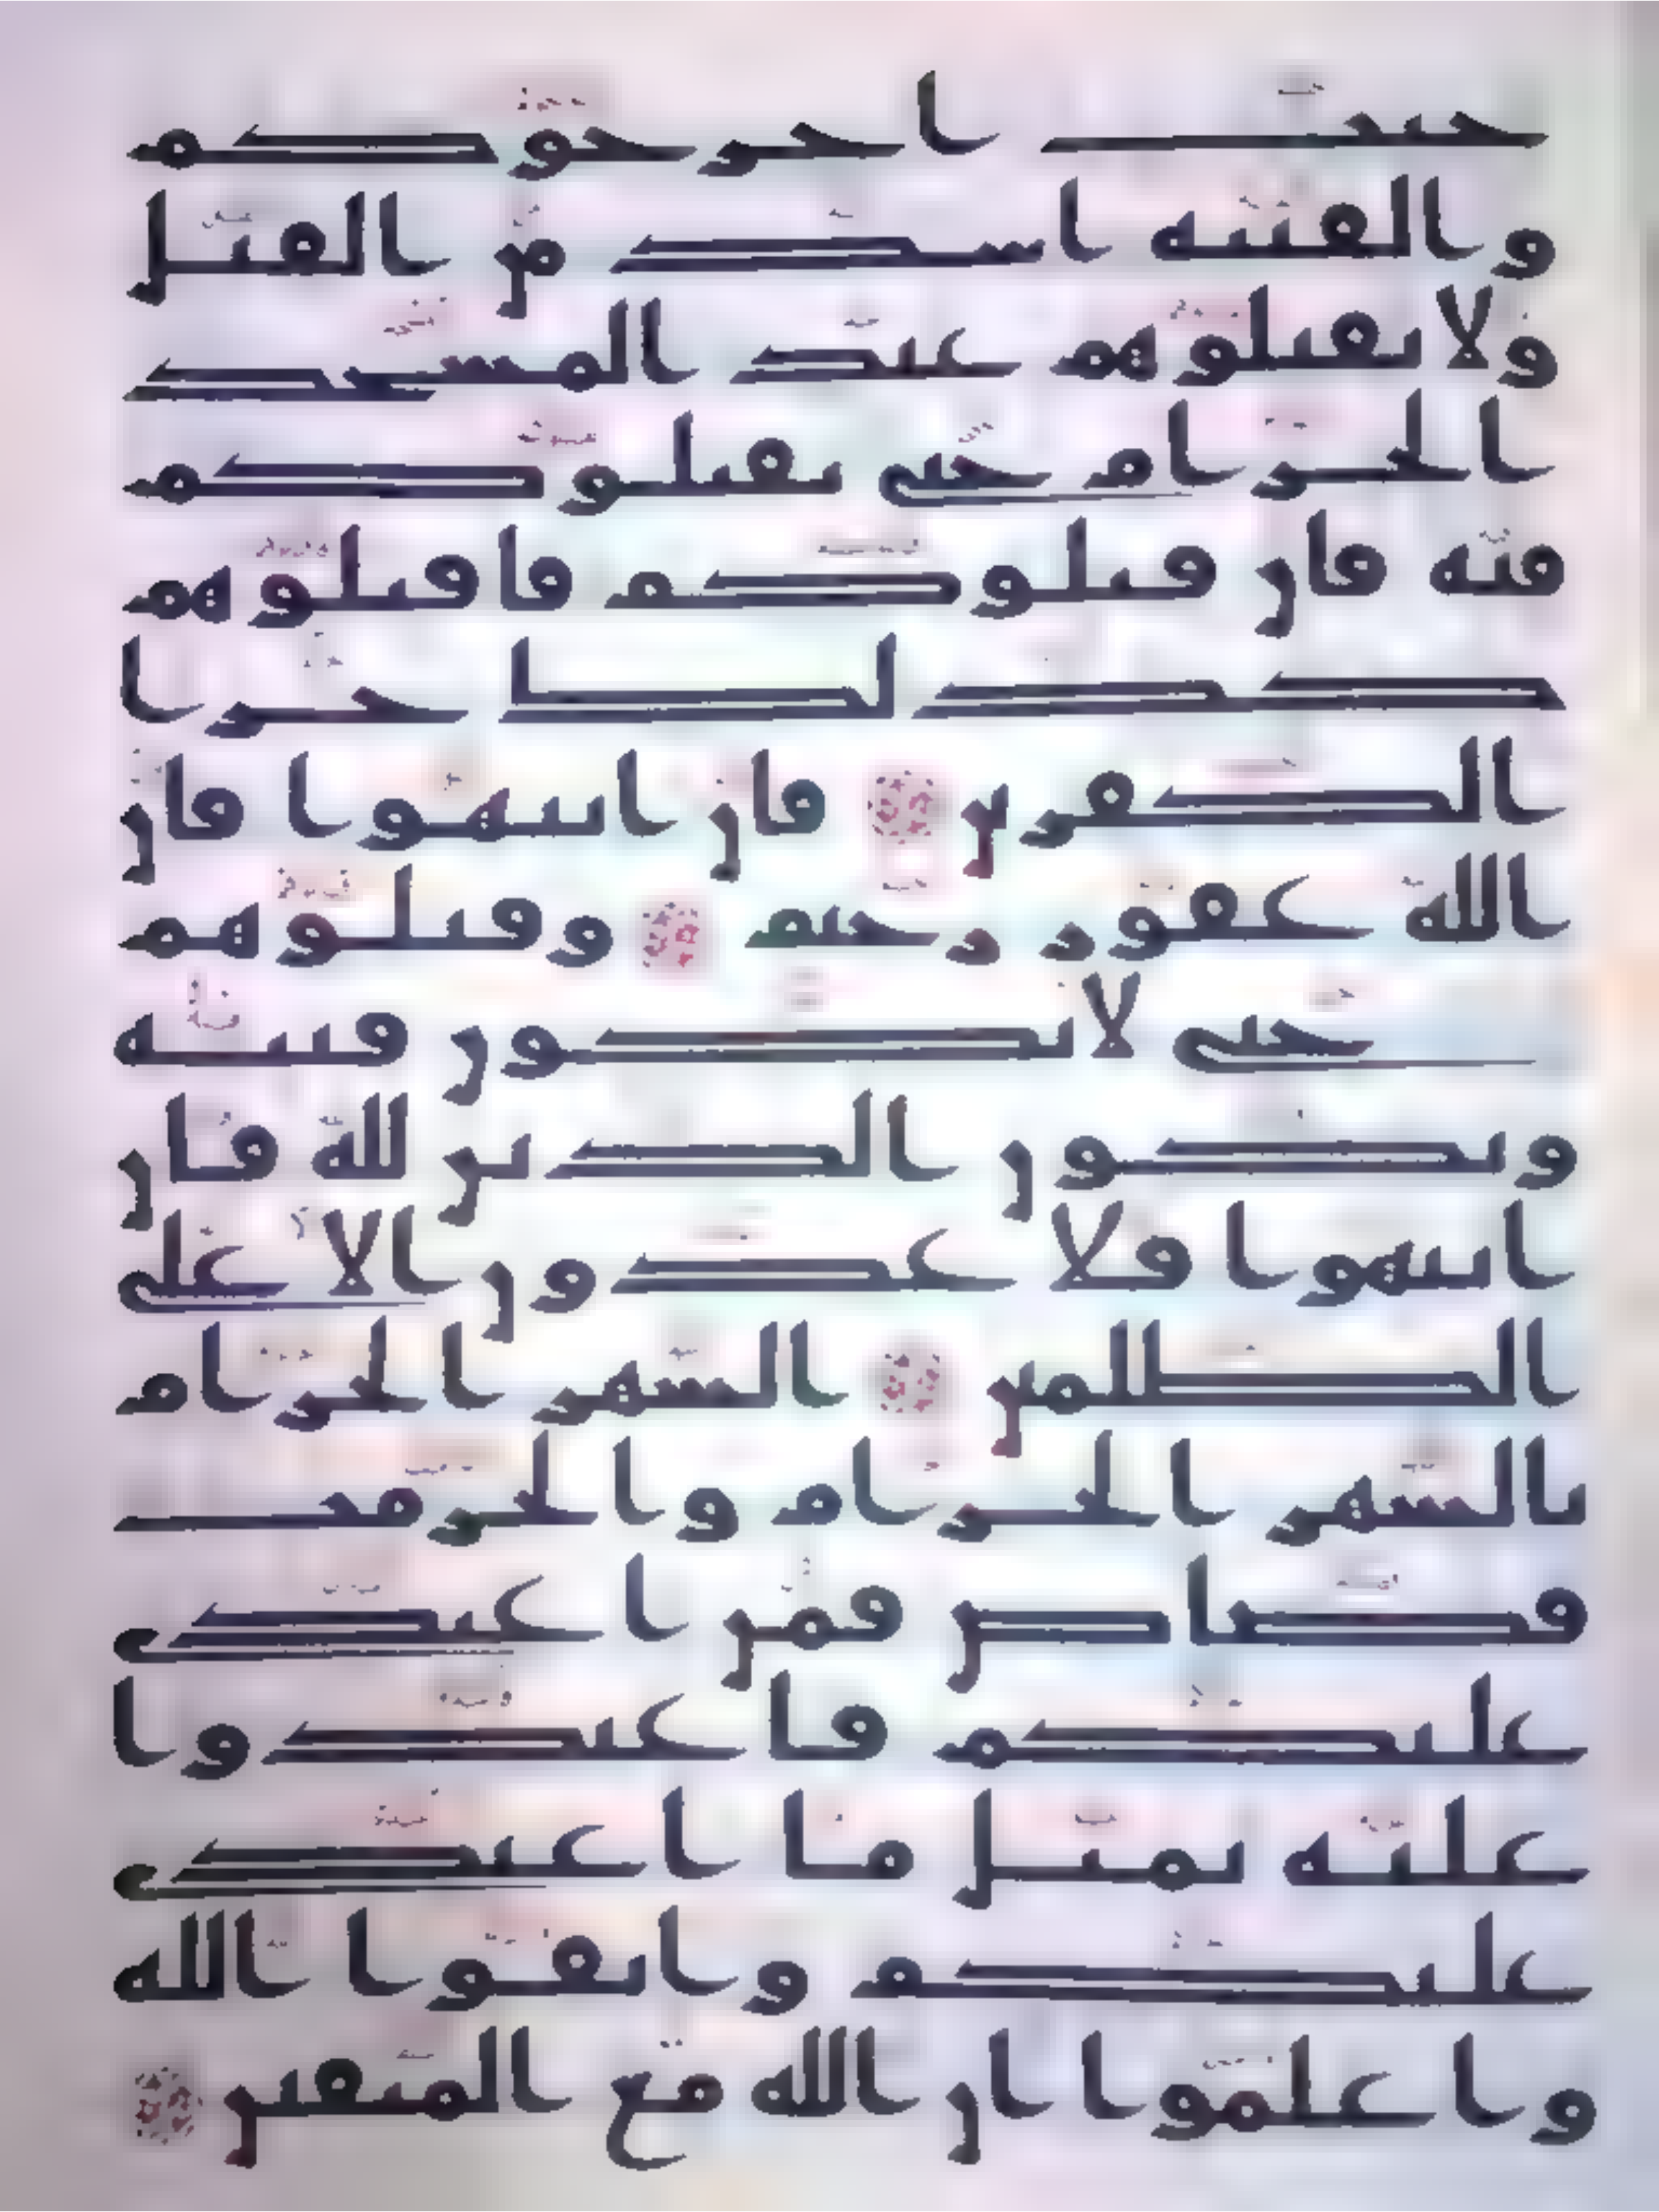 حيث اخرجوكم
والفتنة اشد من القتل
ولا تقتلوهم عند المسجد
الحرام حتى يقتلوكم
فيه فان قتلوكم فاقتلوهم
كذلك جزا
الكفرين فان انتهوا فان
الله غفور رحيم وقتلوهم
حتى لا تكون فتنة
ويكون الدين لله فان
انتهوا فلا عدون الا على
الظلمين الشهر الحرام
بالشهر الحرام والحرمت
قصاص فمن اعتدى
عليكم فاعتدوا
عليه بمثل ما اعتدى
عليكم واتقوا الله
واعلموا ان الله مع المتقين